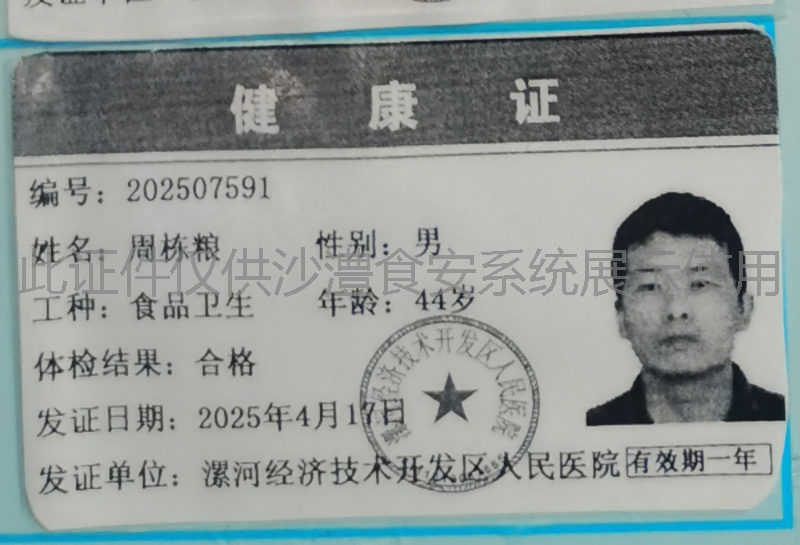 健康证
编号：202507591
姓名：周栋粮 性别：男
此证件仅供沙澧食安系统展示使用
工种：食品卫生 年龄：44岁
体检结果：合格
漯河经济技术开发区人民医院
发证日期：2025年4月17日
发证单位：漯河经济技术开发区人民医院 有效期一年